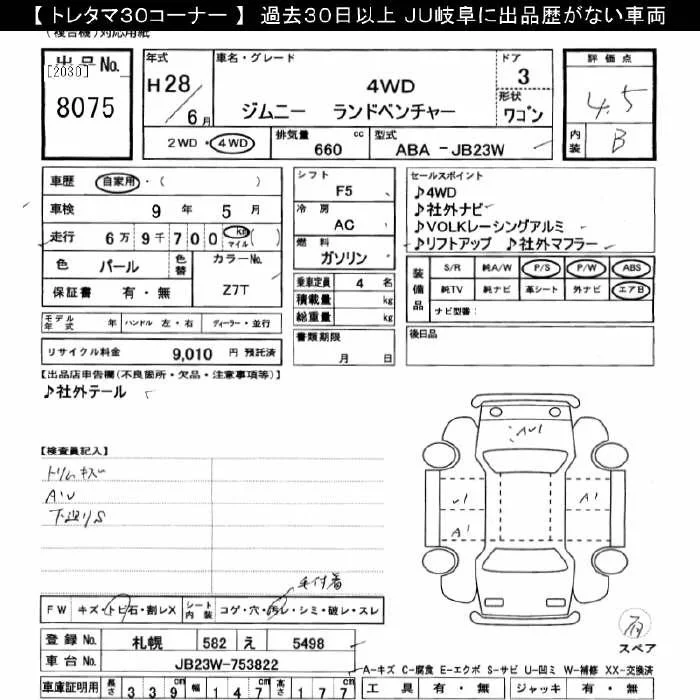 【 トレタマ30コーナー 】 過去30日以上 JU岐阜に出品歴がない車両
(複合機)対応用紙
出品No. [2030] 8075
年式 H28/6月
車名・グレード 4WD ジムニー ランドベンチャー
ドア 3
形状 ワゴン
2WD・4WD
排気量 660 cc
型式 ABA -JB23W
評価点 4.5
内装 B
車歴 自家用・( )
車検 9年 5月
走行 6万9千700 Km マイル ( )
色 パール 色替 カラーNo. Z7T
保証書 有・無
モデル年式 年 ハンドル 左・右 ディーラー・並行
リサイクル料金 9,010 円 預託済
シフト F5
冷房 AC
燃料 ガソリン
乗車定員 4 名
積載量 kg
総重量 kg
書類期限 月 日
セールスポイント
♪4WD
♪社外ナビ
♪VOLKレーシングアルミ
♪リフトアップ ♪社外マフラー
装備品 S/R 純A/W P/S P/W ABS
純TV 純ナビ 革シート 外ナビ エアB
ナビ型番:
後日品
【出品店申告欄(不良箇所・欠品・注意事項等)】
♪社外テール
【検査員記入】
トリムキズ
A・U
下廻りS
毛付着
A・U1
U1
A1
A1
FW キズ・トビ石・割レX シート内装 コゲ・穴・汚レ・シミ・破レ・スレ
登録 No. 札幌 582 え 5498
車台 No. JB23W-753822
車庫証明用 長さ 339 cm 幅 147 cm 高さ 177 cm
スペア 有
A-キズ C-腐食 E-エクボ S-サビ U-凹ミ W-補修 XX-交換済
工具 有・無 ジャッキ 有・無